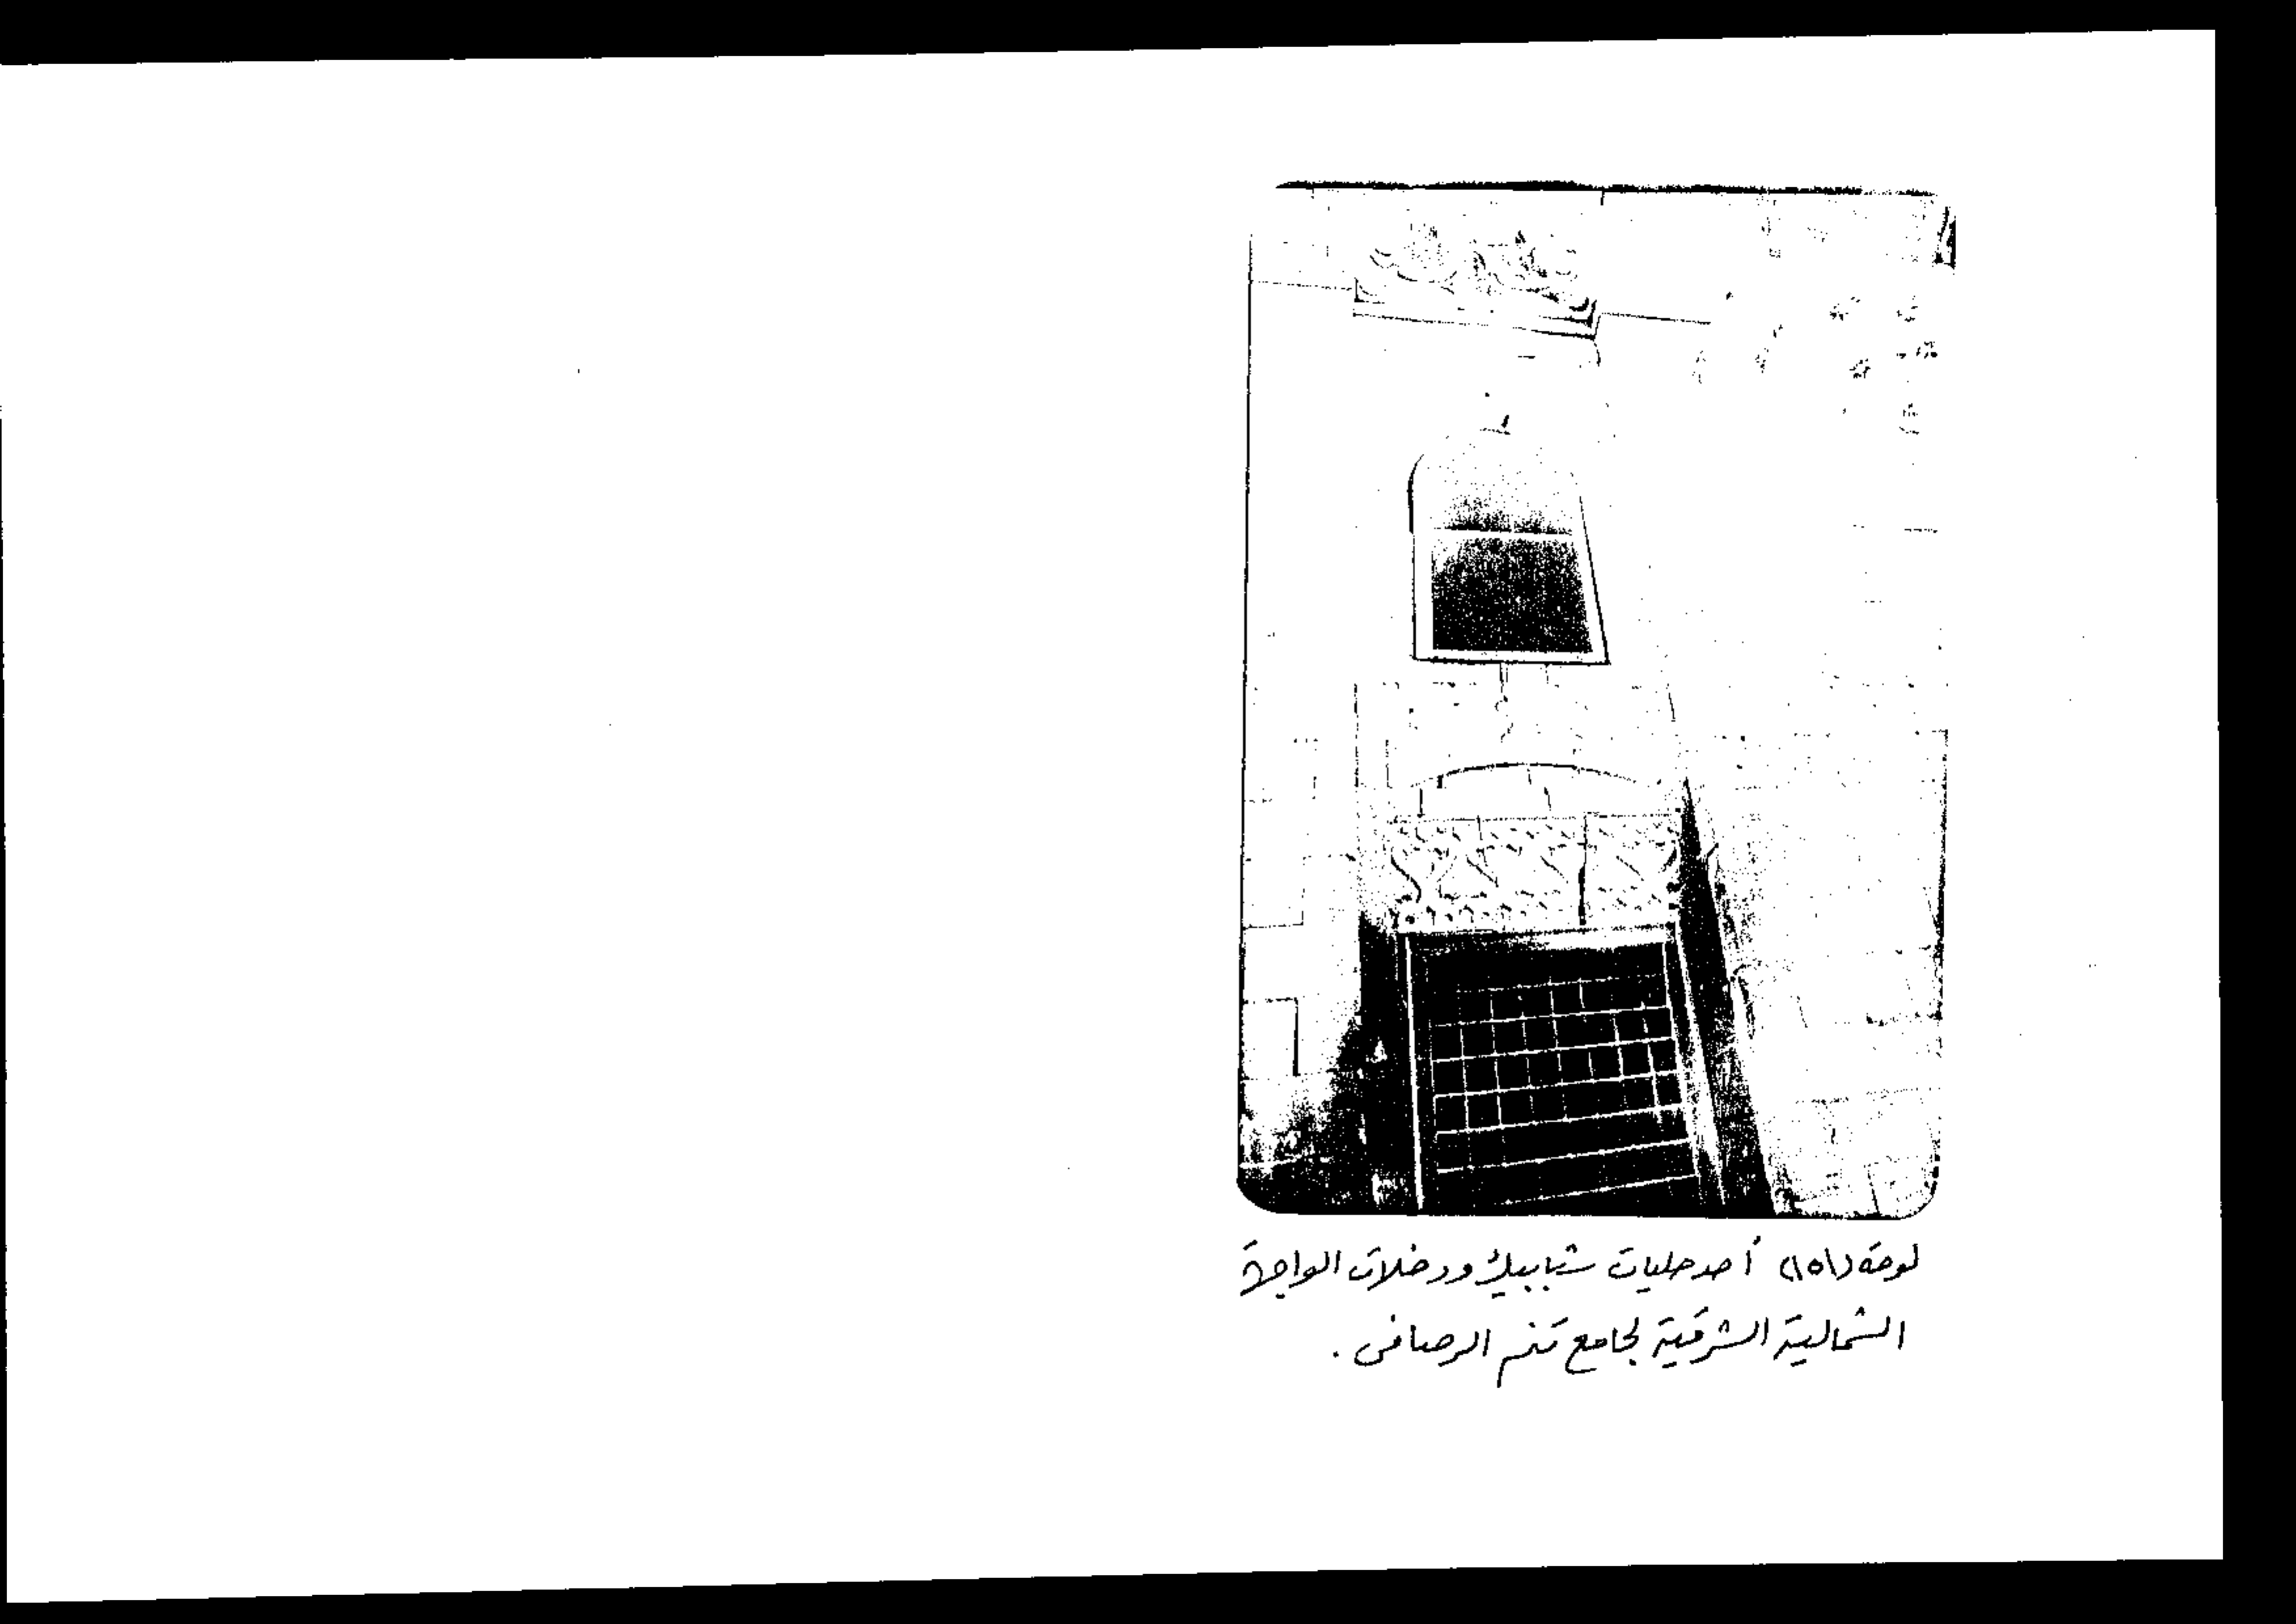 لوحة (١٥١) أحد حليات شبابيك ودخلات الواجهة
الشمالية الشرقية لجامع تنم الرصافى .